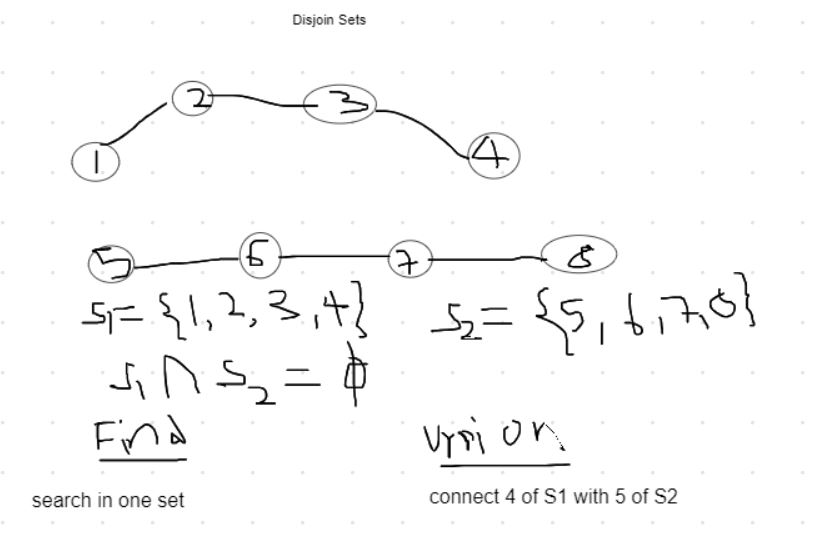 Disjoin Sets
2 3
1 4
5 6 7 8
S1 = {1, 2, 3, 4} S2 = {5, 6, 7, 8}
S1 ∩ S2 = ϕ
Find Union
search in one set connect 4 of S1 with 5 of S2